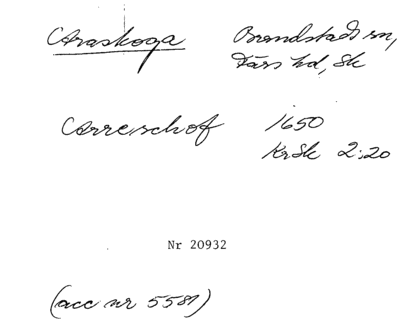 Araskoga Brandstads sn,
Färs hd, Sk
Arreschof 1650
KrSk 2:20
Nr 20932
(acc nr 5581)